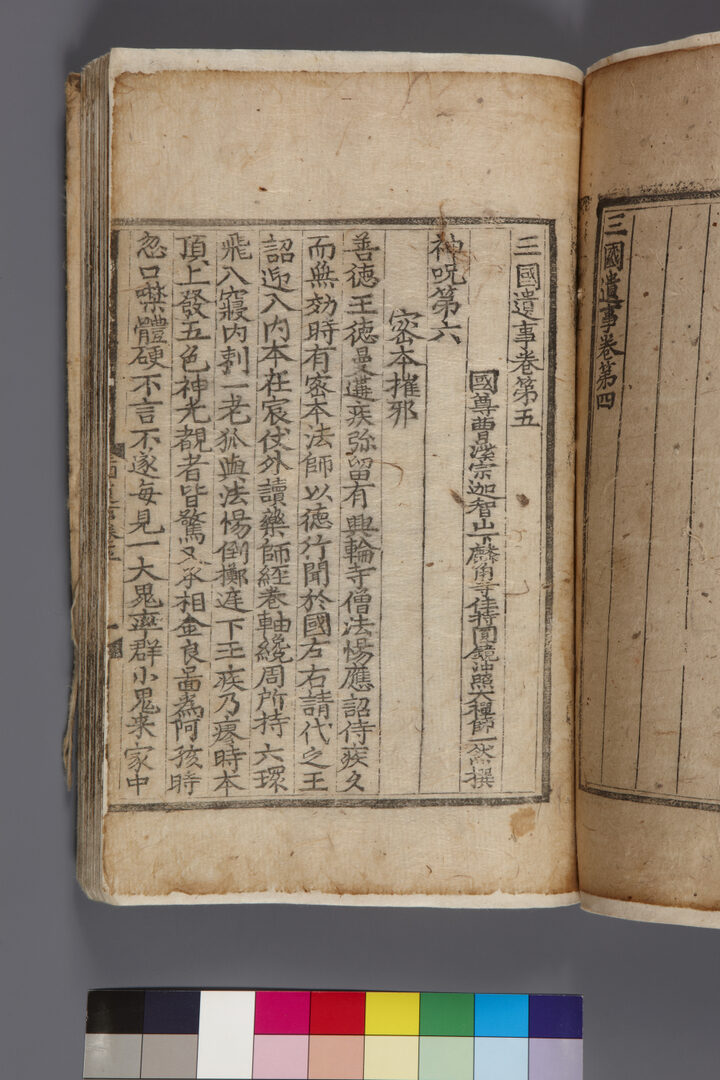 三國遺事卷第四
三國遺事卷第五
國尊曺溪宗迦智山下麟角寺住持圓鏡冲照大禪師一然撰
神呪第六
密本摧邪
善德王德曼遘疾弥留有興輪寺僧法惕應詔侍疾久
而無効時有密本法師以德行聞於國左右請代之王
詔迎入内本在宸仗外讀藥師經卷軸纔周所持六環
飛入寢内刺一老狐與法惕倒擲庭下王疾乃瘳時本
頂上發五色神光覩者皆驚又承相金良啚爲阿孩時
忽口噤體硬不言不遂每見一大鬼率群小鬼来家中